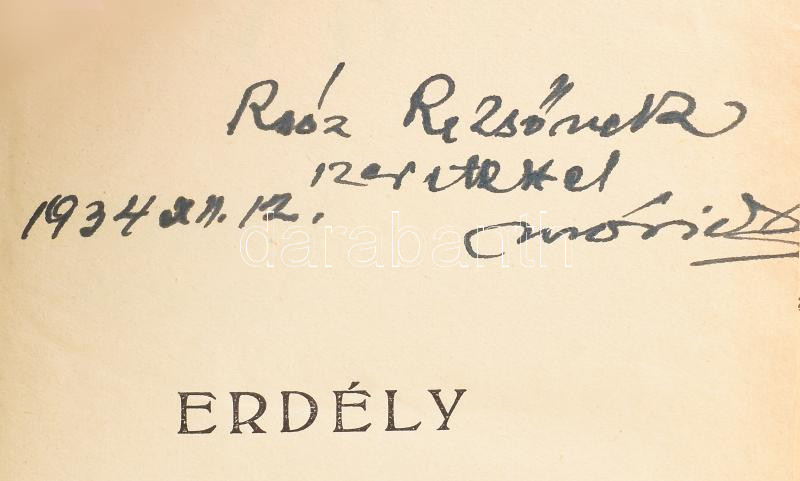 Roóz Rezsőnek
szeretettel
1934 XII. 12.
Móricz
darabanth
ERDÉLY